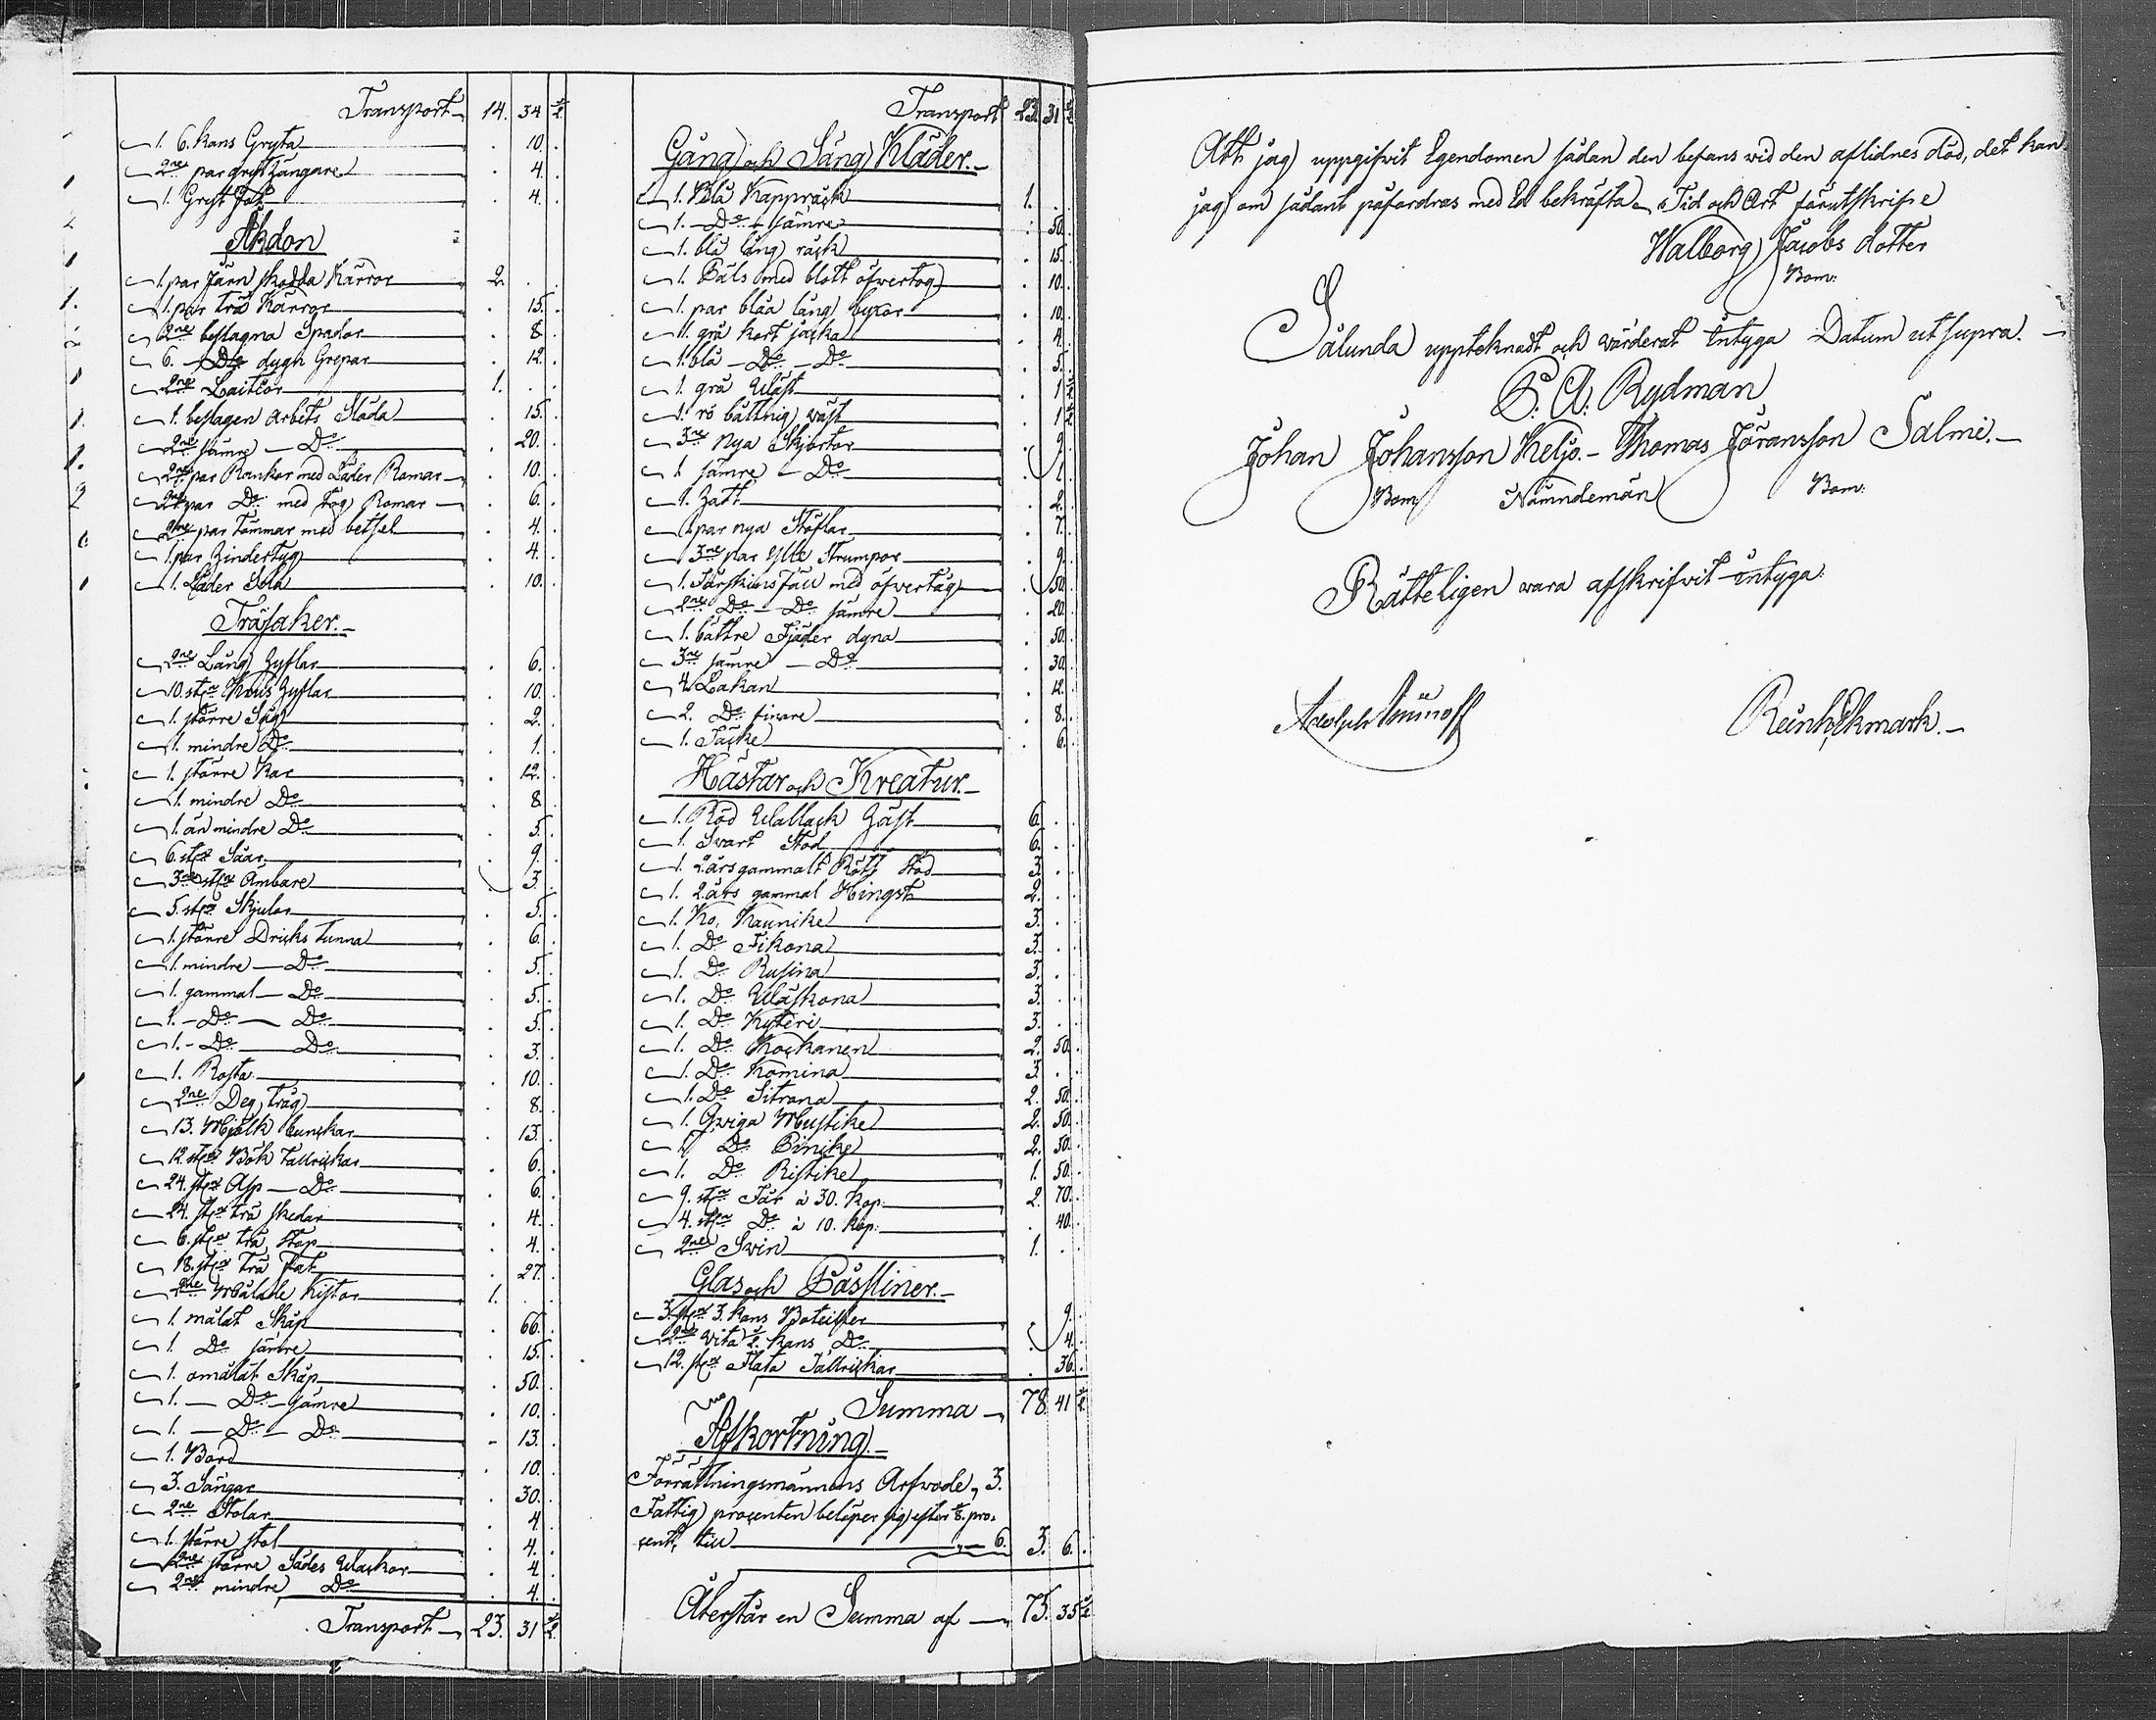 Transport 14. 34 1/2
1. 6. kans Gryta . 10. .
2ne par grytt Hängare . 4. .
1. Gryt fot . 4. .
Åkdon
1. par Järn skodda Kärror 2. . .
1. par trä Kärror . 15. .
2ne beslagna Spadar . 8. .
6. Do dygn Grepar . 12. .
2ne Laitior 1. . .
1. beslagen arbets Släda . 15. .
2ne sämre Do . 20. .
2ne par Rankor med Läder Romar . 10. .
2ne par Do med tog Romar . 6. .
2ne par tömmar med betsel . 4. .
1. par Hindertyg . 4. .
1. Läder Sela . 10. .
Träsaker.
2ne Lång Hyflar . 6. .
10. st:n Knut Hyflar . 10. .
1. större Såg . 2. .
1. mindre Do . 1. .
1. större Kar . 12. .
1. mindre Do . 8. .
1. än mindre Do . 5. .
6. st:n Såar . 9. .
3ne st:n Ämbare . 3. .
5. st:n Skjulor . 5. .
1. större Dricks tunna . 6. .
1. mindre Do . 5. .
1. gammal Do . 5. .
1. Do Do . 5. .
1. Do Do . 3. .
1. Rosta . 10. .
2ne Deg tråg . 8. .
13. Mjölk bunckar . 13. .
12. st:n Bök Tallrickar . 6. .
24. st:n Asp Do . 6. .
24. st:n trä skedar . 4. .
6. st:n trä stop . 4. .
18. st:n Trä Fat . 27. .
2ne Målade Kistor 1. . .
1. målat Skåp . 66. .
1. Do sämre . 15. .
1. omålat Skåp . 50. .
1. Do sämre . 10. .
1. Do Do . 13. .
1. Bord . 10. .
3. Sängar . 30. .
2ne Stolar . 4. .
1. större stol . 4. .
2ne större Sädes Wackor . 4. .
2ne mindre Do . 4. .
Transport 23. 31 1/2
Transport 23. 31 1/2
Gång och Säng Kläder.
1. Blå Kapprock 1. . .
1. Do sämre . 50. .
1. blå lång råck . 15. .
1. Päls med blott öfwertog . 10. .
1. par blåa lång byxor . 10. .
1. grå kort jacka . 4. .
1. blå Do Do . 5. .
1. grå Wäst . 1 1/2
1. rö båttnig wäst . 1 1/2
3ne Nya Skjortor . 9. .
1. sämre Do . 1. .
1. Hatt . 2. .
1. par nya Stöflar . 7. .
3ne par Ylle Strumpor . 9. .
1. Fårskinsfäll med öfwertåg . 50. .
2ne Do Do sämre . 20. .
1. bättre Fjäder dyna . 50. .
3ne sämre Do . 30. .
4. Lakan . 12. .
2. Do finare . 8. .
1. Täcke . 6. .
Hästar och Kreatur.
1. Röd Wallack Häst 6. . .
1. Svart Stod 6. . .
1. 2. årsgammalt Rött Stod 3. . .
1. 2. års gammal Hingst 2. . .
1. Ko. Kaunike 3. . .
1. Do Fikona 3. . .
1. Do Rusina 3. . .
1. Do Wäskona 3. . .
1. Do Kyteri 3. . .
1. Do Kockanen 2. 50. .
1. Do Komina 3. . .
1. Do Sitrona 2. 50. .
1. Qwiga Mustike 2. 50. .
1. Do Binike 2. 50. .
1. Do Ristike 1. 50. .
9. st:n Får à 30. Kop: 2. 70. .
4. st:n Do à 10. Kop: . 40. .
2ne Swin 1. . .
Glas och Påssliner.
3. st:n 3. kans Boteiller . 9. .
2ne Wita 1/2 kans Do . 4. .
12. st:n Flata Tallrickar . 36. .
Summa 78. 41 1/2
Afkortning.
Förrättningsmännens Arfwode, 3.
Fattig procenten belöper sig efter 1/8 pro-
cent, till 6. 3. 6. .
Återstår en Summa af 75. 35 1/2
Att jag uppgifvit Egendomen sådan den befans wid den aflidnes död, det kan
jag om sådant påfordras med Ed bekräfta. Tid och Ort förutskrifne
Walborg Jacobs dotter
Bom:
Sålunda upptecknadt och wärderat intyga Datum ut supra.
P. A. Rydman
Johan Johansson Keljo. Thomas Jöransson Salmi.
Bom: Nämndeman Bom:
Rätteligen wara afskrifvit intyga:
Reinh. Ekmark.